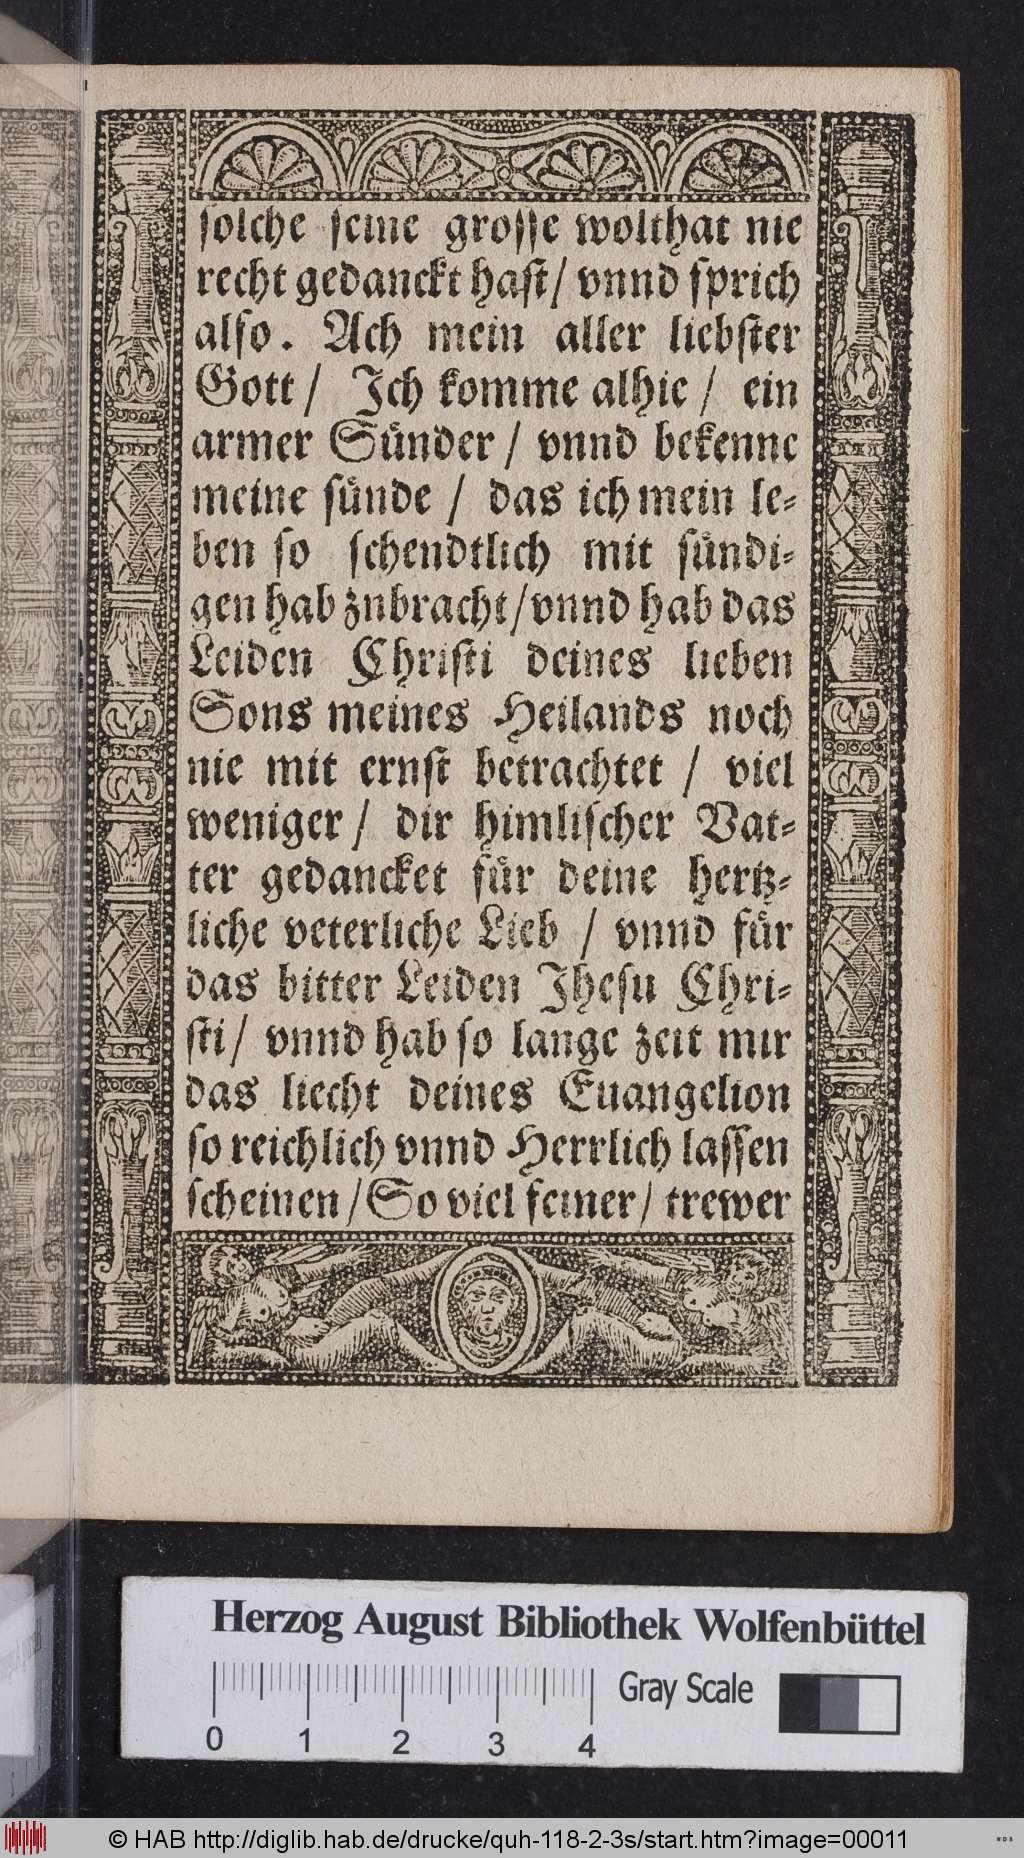 solche seine grosse wolthat nie
recht gedanckt hast/ vnnd sprich
also. Ach mein aller liebster
Gott/ Ich komme alhie/ ein
armer Sünder/ vnnd bekenne
meine sünde/ das ich mein le-
ben so schendtlich mit sündi-
gen hab znbracht/vnnd hab das
Leiden Christi deines lieben
Sons meines Heilands noch
nie mit ernst betrachtet/ viel
weniger/ dir himlischer Vat-
ter gedancket für deine hertz-
liche veterliche Lieb/ vnnd für
das bitter Leiden Jhesu Chri-
sti/ vnnd hab so lange zeit mir
das liecht deines Euangelion
so reichlich vnnd Herrlich lassen
scheinen/So viel feiner/ trewer
Herzog August Bibliothek Wolfenbüttel
Gray Scale
0 1 2 3 4
© HAB http://diglib.hab.de/drucke/quh-118-2-3s/start.htm?image=00011